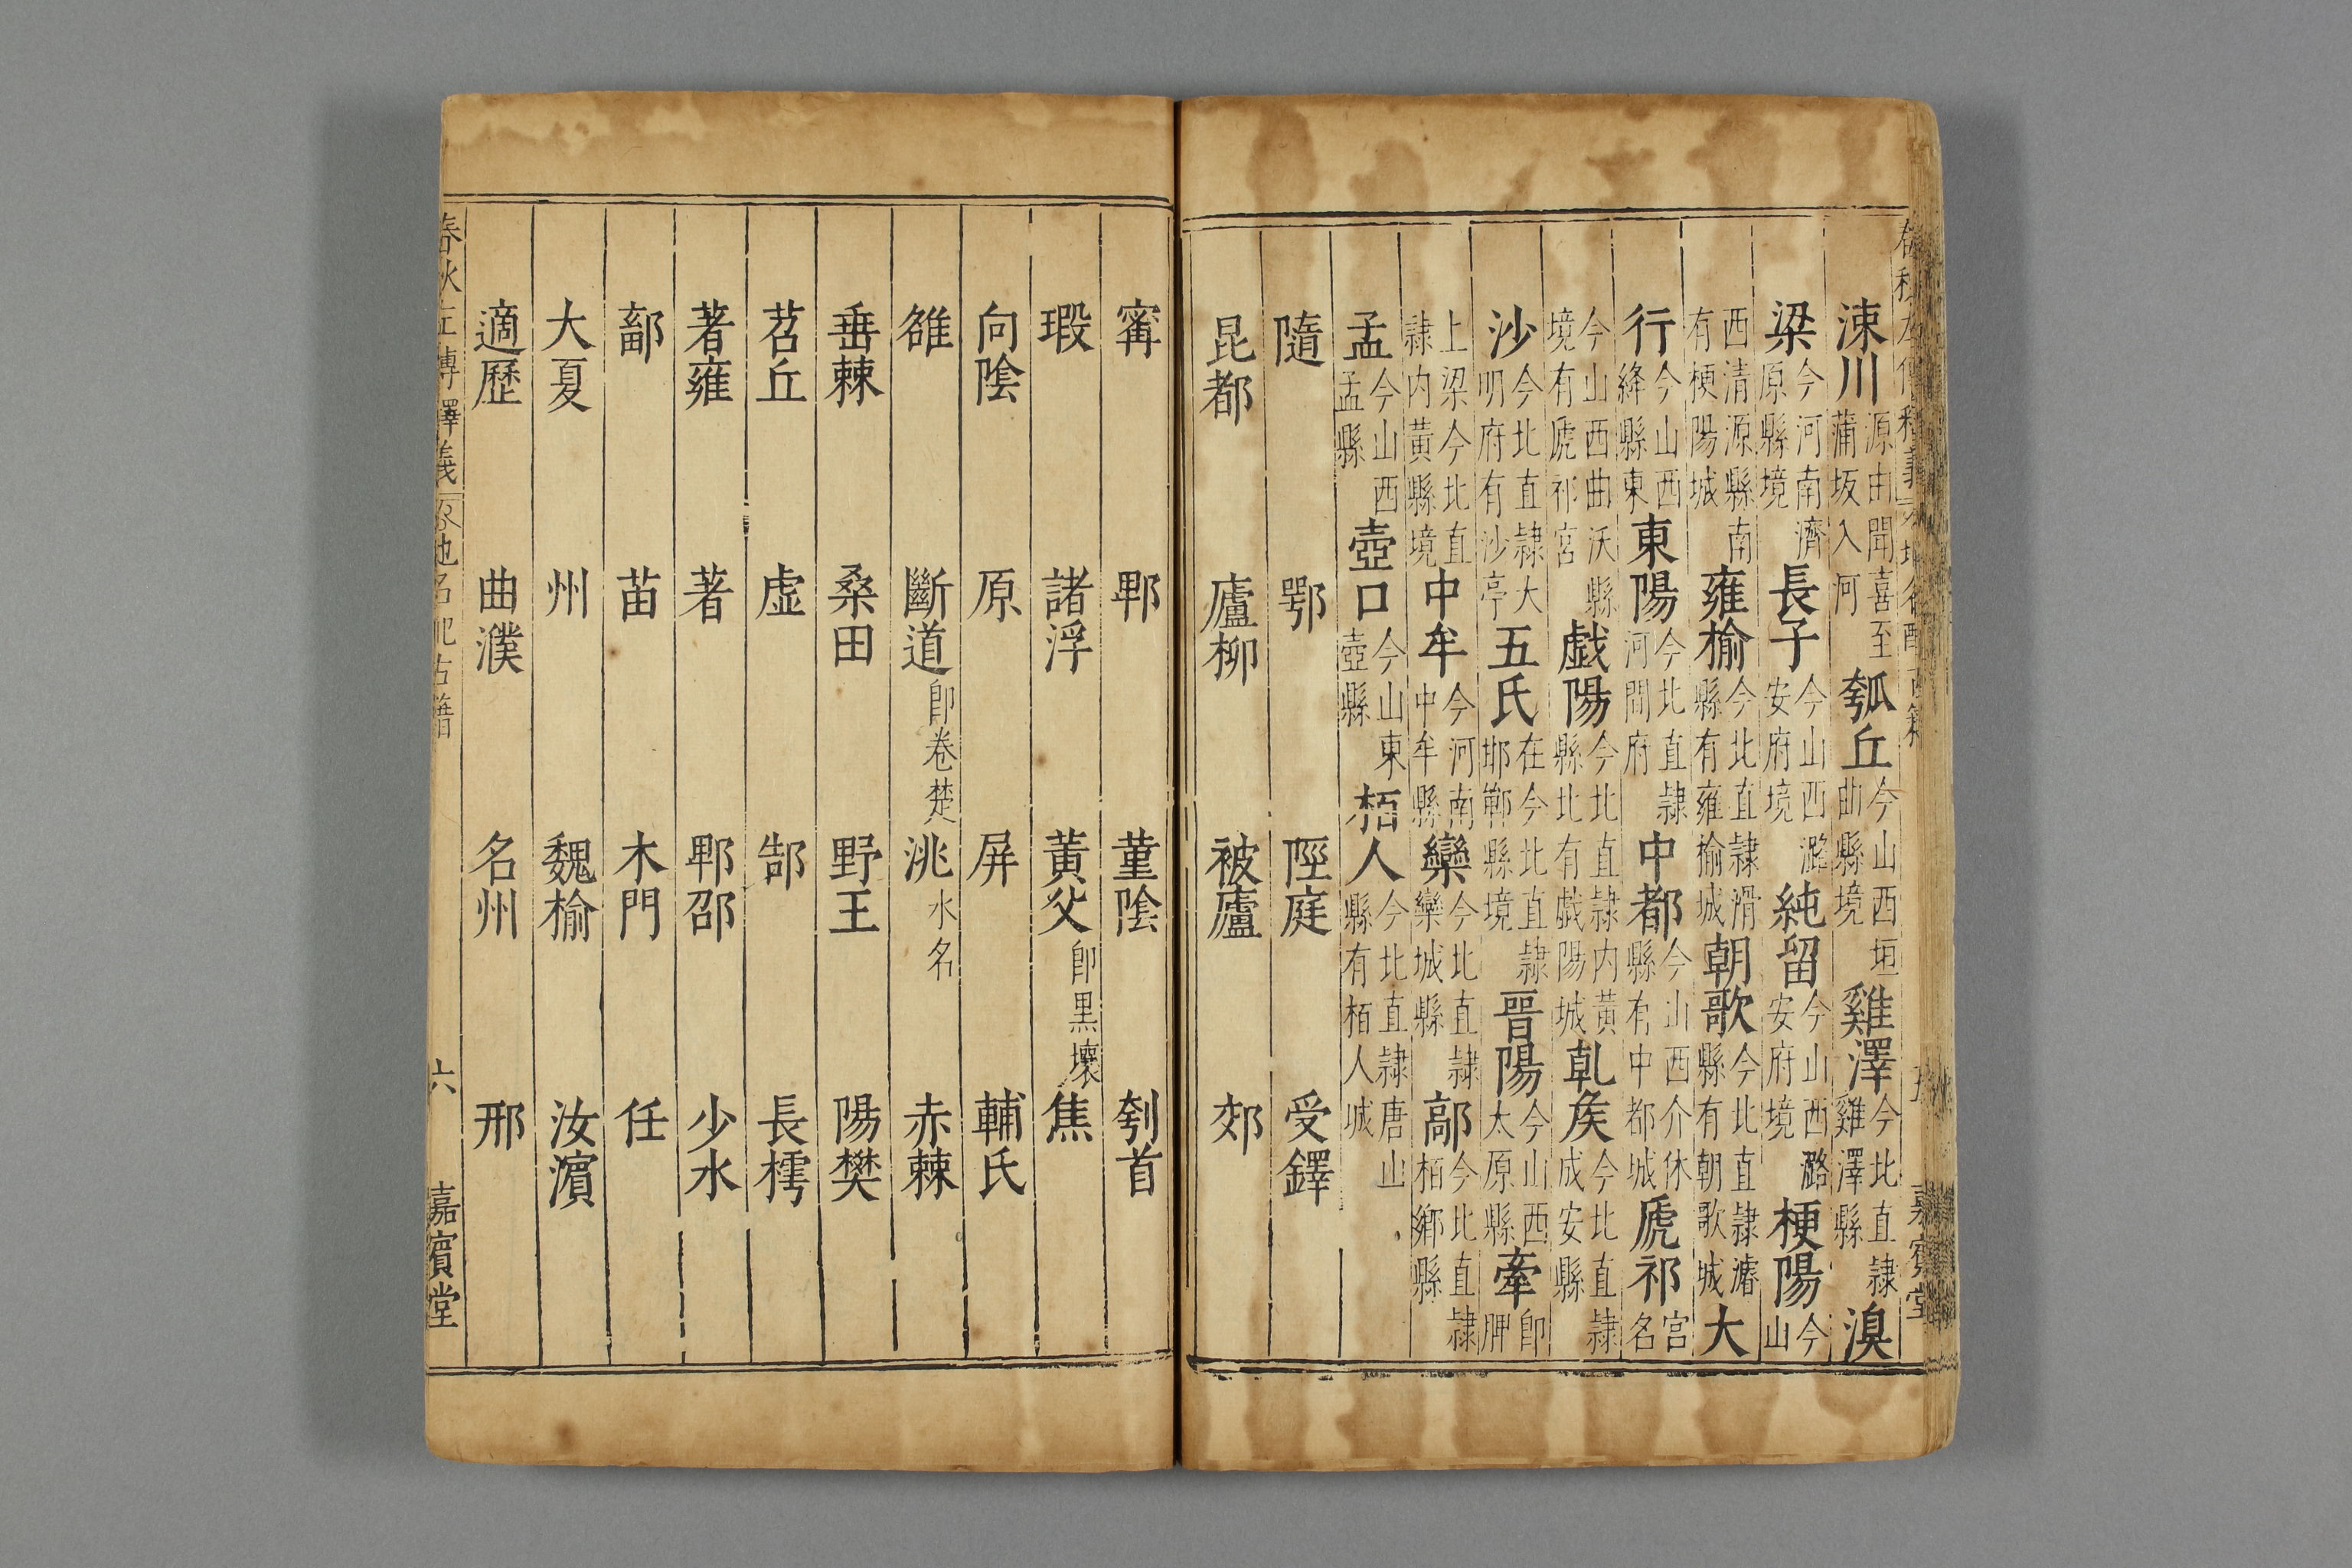 涑川源由聞喜至蒲坂入河瓠丘今山西垣曲縣境雞澤今北直隸雞澤縣湨
梁今河南濟原縣境長子今山西潞安府境純留今山西潞安府境梗陽今山
西清源縣南有梗陽城雍榆今北直隸滑縣有雍榆城朝歌今北直隸濬縣有朝歌城大
行今山西絳縣東東陽今北直隸河間府中都今山西介休縣有中都城虒祁宮名
今山西曲沃縣境有虒祁宮戲陽今北直隸內黃縣北有戲陽城乹矦今北直隸成安縣
沙今北直隸大明府有沙亭五氏在今北直隸邯鄲縣境晉陽今山西太原縣牽卽胛
上梁今北直隸內黃縣境中牟今河南中牟縣欒今北直隸欒城縣鄗今北直隸栢鄉縣
孟今山西孟縣壺口今山東壺縣栢人今北直隸唐山縣有栢人城
隨 鄂 陘庭 受鐸
昆都 廬柳 被廬 郊
甯 鄆 董陰 刳首
瑕 諸浮 黃父卽黑壤 焦
向陰 原 屏 輔氏
雒 斷道卽卷楚 洮水名 赤棘
垂棘 桑田 野王 陽樊
苕丘 虛 郜 長樗
著雍 著 郫邵 少水
鄐 苗 木門 任
大夏 州 魏榆 汝濱
適歷 曲濮 名州 邢
春秋左傳釋義 地名配古籍 六 嘉賓堂